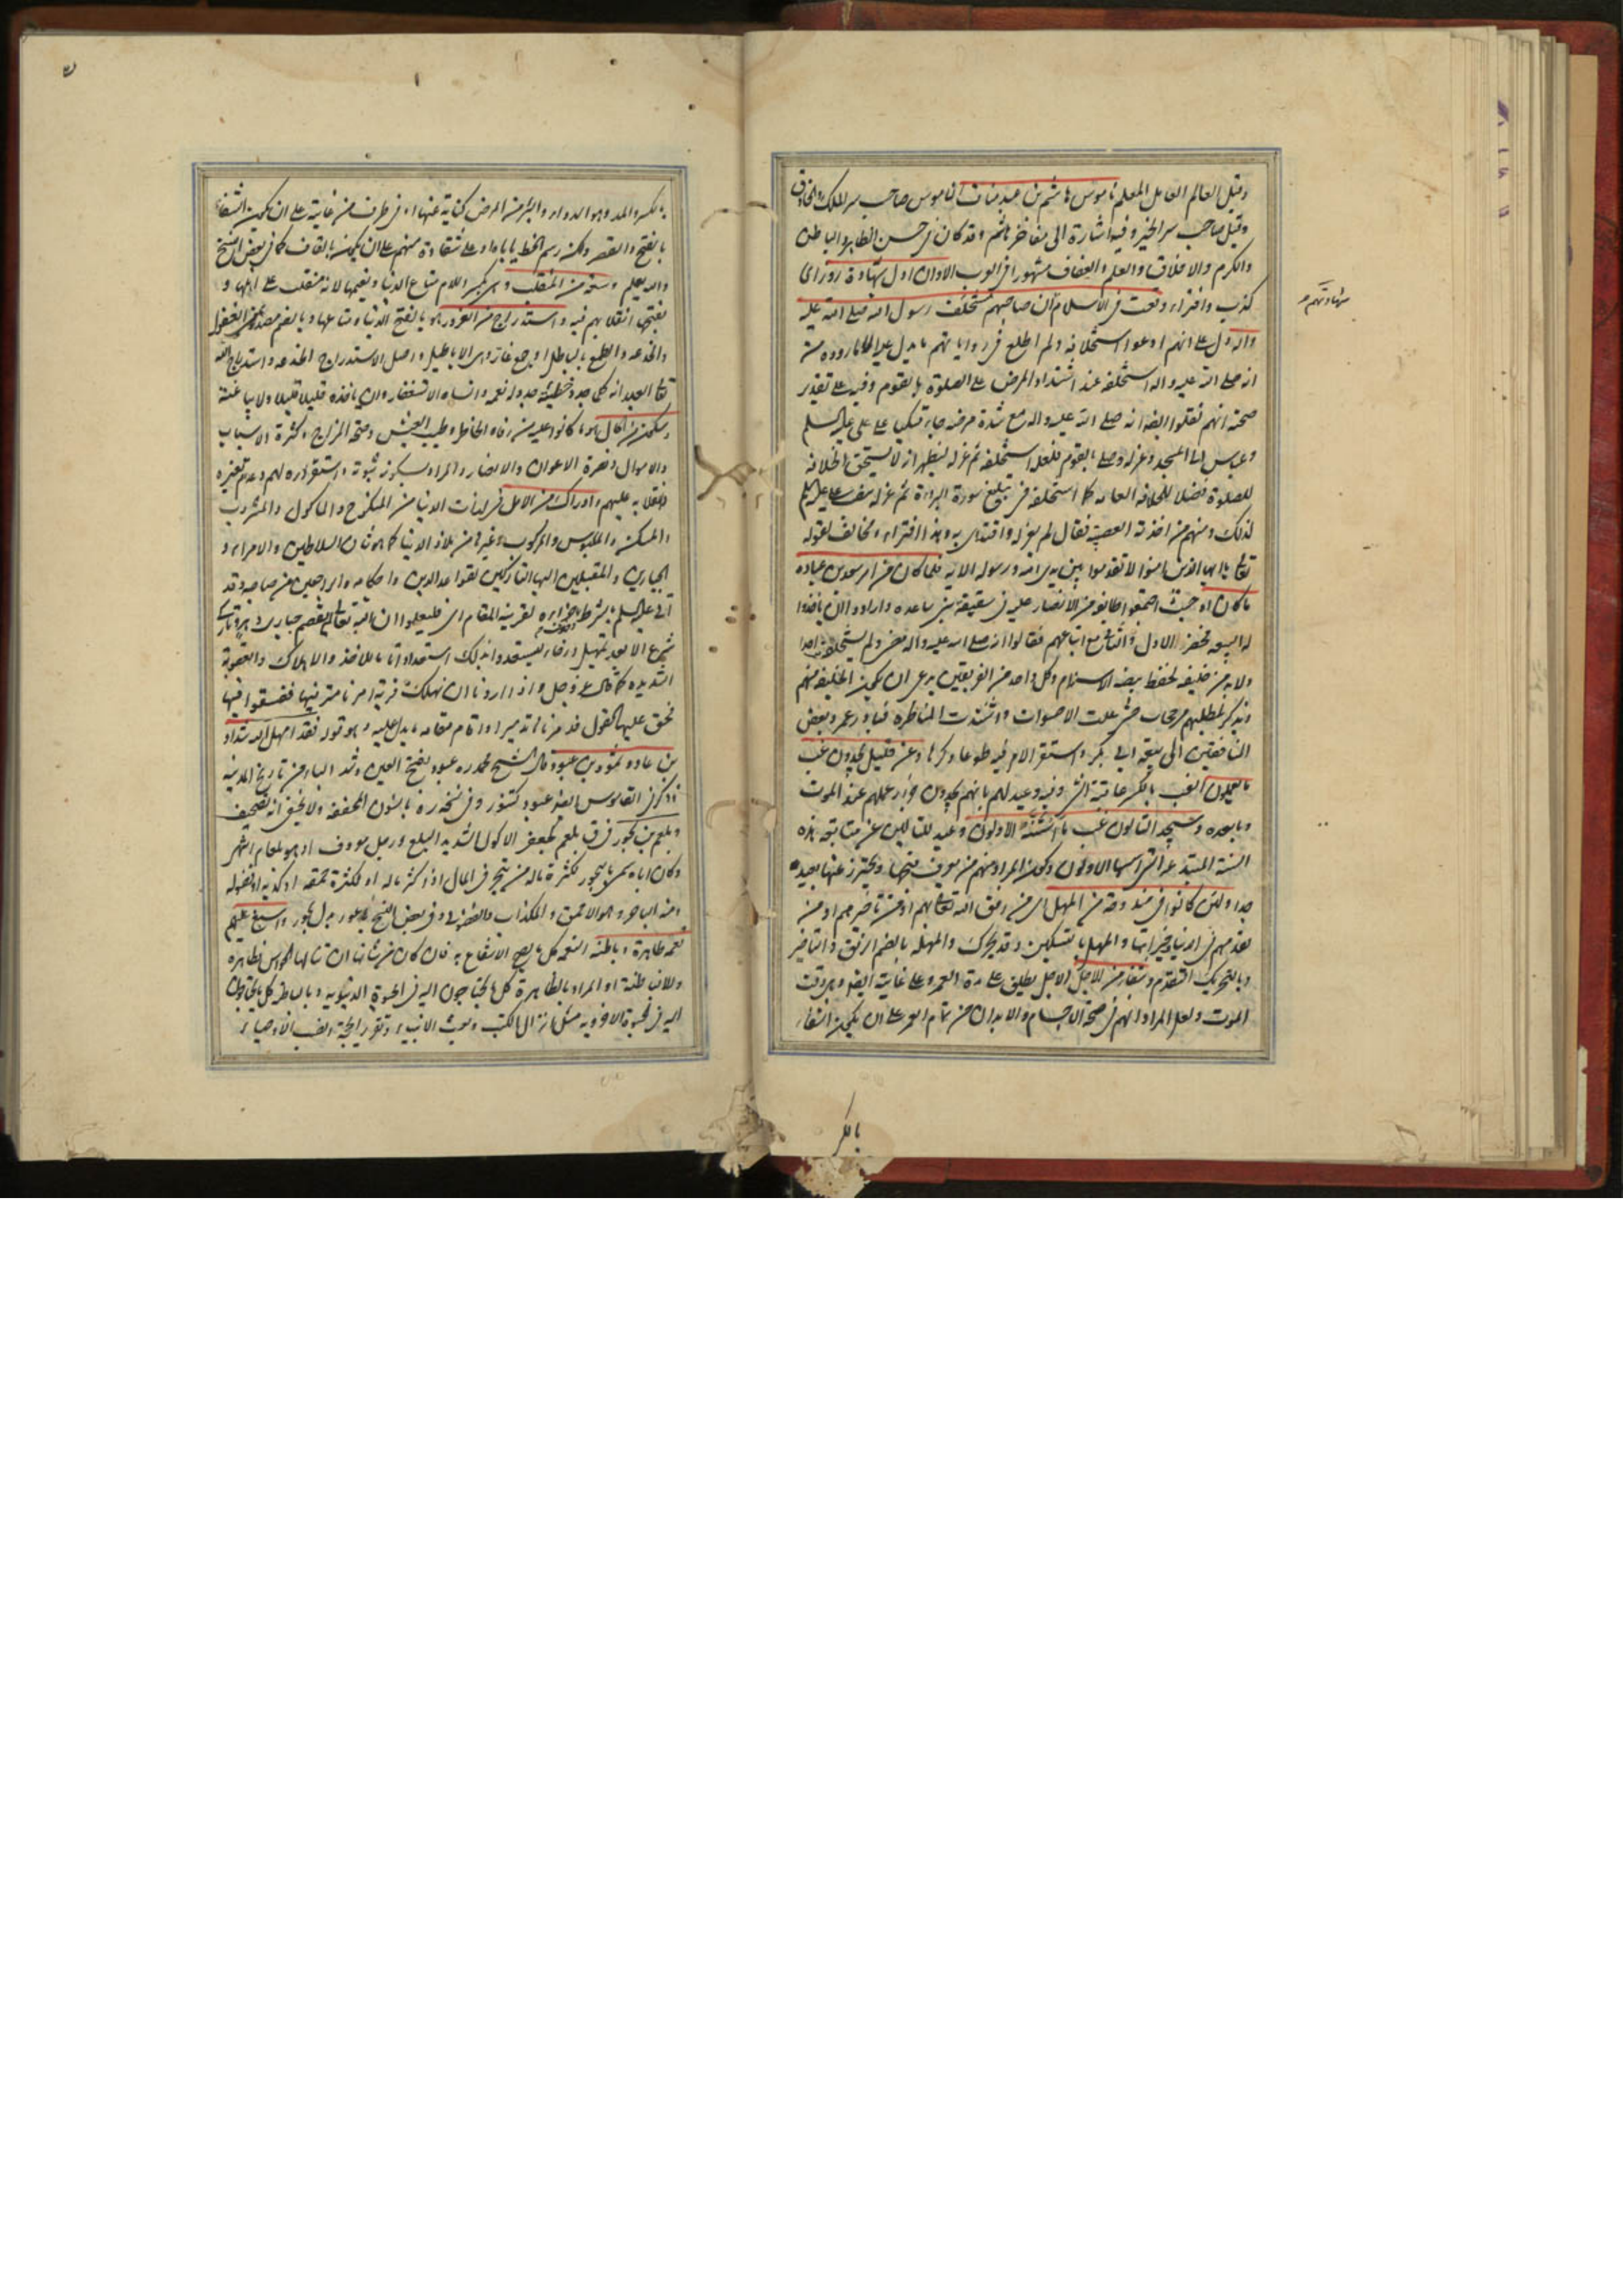 وقيل العالم العامل المعلم ناموس هاشم بن عبد مناف الناموس صاحب سر الملك
وقيل صاحب سر الخير وفيه اشارة الى مفاخر هاشم وقد كان في حسن الظاهر والباطن
والكرم والاخلاق والعلم والعفاف مشهورا في العرب الاوان اول شهادة زور اى
كذب وافتراء وقعت فى الاسلام ان صاحبهم مستخلف رسول الله صلى الله عليه
واله دل على انهم ادعوا استخلافه ولم اطلع فى رواياتهم ما يدل عليه الا ما رووه من
انه صلى الله عليه واله استخلفه عند اشتداد المرض على الصلوة بالقوم وفيه على تقدير
صحته انهم نقلوا ايضا انه صلى الله عليه واله مع شدة مرضه جاء متكيا على على عليه السلم
وعباس الى المسجد وعزله وصلى بالقوم فلعله استخلفه ثم عزله ليظهر انه لا يستحق الخلافة
للصلوة فضلا للخلافة العامة كما استخلفه فى تبليغ سورة البراءة ثم عزله بعلى عليه السلم
لذلك ومنهم من اخذته العصبية فقال لم يعزله واقتدى به وهذا افتراء ومخالف لقوله
تعالى يا ايها الذين امنوا لا تقدموا بين يدى الله ورسوله الاية فلما كان من امر سعد بن عبادة
ما كان اذ حيث اجتمع طائفة من الانصار عليه فى سقيفة بنى ساعدة وارادوا ان ياخذوا
له البيعة فحضر الاول والثانى مع اتباعهم فقالوا انه صلى الله عليه واله مضى ولم يستخلف احدا
ولا بد من خليفة لحفظ بيضة الاسلام وكل واحد من الفريقين يدعى ان يكون الخليفة منهم
ويذكر لمطلبهم مرجحات حتى علت الاصوات واشتدت المناظرة فبادر عمر وبعض
المنافقين الى بيعة ابى بكر واستقر الامر فيه طوعا وكرها وعن قليل يجدون غب
ما يعملون الغب بالكسر عاقبة الشئ وفيه وعيد لهم بانهم يجدون جزاء عملهم عند الموت
وما بعده وسيجد التالون غب ما اسسه الاولون وعيد للتالين عن متابعة هذه
السنة المبتدعة التى اسسها الاولون وكون المراد منهم من يعرف قبحها ويحترز عنها بعيد
جدا ولئن كانوا فى مندوحة من المهل اى من رفق الله تعالى بهم او من تاخيرهم او من
تقدمهم فى الدنيا وخيراتها والمهل بالتسكين وقد يحرك والمهلة بالضم الرفق والتاخير
وبالتحريك التقدم وشفاء من الاجل الاجل يطلق على مدة العمر وعلى غايته ايضا وهى وقت
الموت ولعل المراد انهم فى صحة الاجسام والابدان من تمام العمر على ان يكون الشفاء
شهادتهم
بالكسر
بالكسر والمد وهو الدواء والبرء من المرض كناية عنها او فى طرف من غايته على ان يكون الشفا
بالفتح والقصر ولكن رسم الخط ياباه او على شقاوة منهم على ان يكون بالقاف كما فى بعض النسخ
والله يعلم وسعة من المنقلب وهى بكسر اللام متاع الدنيا ونعيمها لانه منقلب على اهلها و
بفتحها انقلابهم فيه واستدراج من الغرور هو بالفتح الدنيا ومتاعها وبالضم مصدر بمعنى الغفلة
والخدعة والطمع بالباطل او جمع غار وهى الاباطيل واصل الاستدراج الخدعة واستدراج الله
تعالى العبد انه كلما جدد خطيئة جدد له نعمة وانساه الاستغفار وان ياخذه قليلا قليلا ولا يباغته
وسكون من الحال هو ما كانوا عليه من رفاه الخاطر وطيب العيش وصحة المزاج وكثرة الاسباب
والاموال ونصرة الاعوان والانصار والمراد بسكونه ثبوته واستقراره لهم وعدم تغيره
وانقلابه عليهم وادراك من الامل فى لذات الدنيا من المنكوح والماكول والمشروب
والمسكن والملبوس والمركوب وغيرها من ملاذ الدنيا كما هو شان السلاطين والامراء و
الجبارين والمقبلين اليها التاركين لقواعد الدين واحكامه والراجعين عن صاحبه وقد
اتى عليه السلم بالشرط وحذف جزاءه لقرينة المقام اى فليعلموا ان الله تعالى لم يقصم جبارى دهر وتارك
شرع الا بعد تمهيل ورخاء ليستعدوا بذلك استعدادا تاما للاخذ والاهلاك والعقوبة
الشديدة كما قال عز وجل واذا اردنا ان نهلك قرية امرنا مترفيها ففسقوا فيها
فحق عليها القول فدمرناها تدميرا واقام مقامه ما يدل عليه وهو قوله فقد امهل الله شداد
بن عاد وثمود بن عبود قال الشيخ محمد ره عبود بفتح العين وشد الباء من تاريخ المدينة
وذكر فى القاموس ايضا عبود كتنور وفى نسخة ره بالنون المخففة ولا يخفى انه تصحيف
وبلعم بن بحور فى ق بلعم كجعفر الاكول الشديد البلع ورجل معروف او هو بلعام اشهر
وكان اباه سمى بابحور لكثرة ماله من بحر فى المال اذا كثر ماله او لكثرة حمقه او كذبه او فضوله
ومنه الباحر وهو الاحمق والكذاب والفضولى وفى بعض النسخ باعور بدل بحور واسبغ عليهم
نعمه ظاهرة وباطنة النعمة كل ما يصح الانتفاع به فان كان من شانها ان تنالها الحواس فظاهرة
والا فباطنة او المراد بالظاهرة كل ما يحتاجون اليه فى الحيوة الدنيوية وبالباطن كل ما يحتاجون
اليه فى الحيوة الاخروية مثل انزال الكتب وبعث الانبياء وتقرير الحجة ونصب الاوصياء